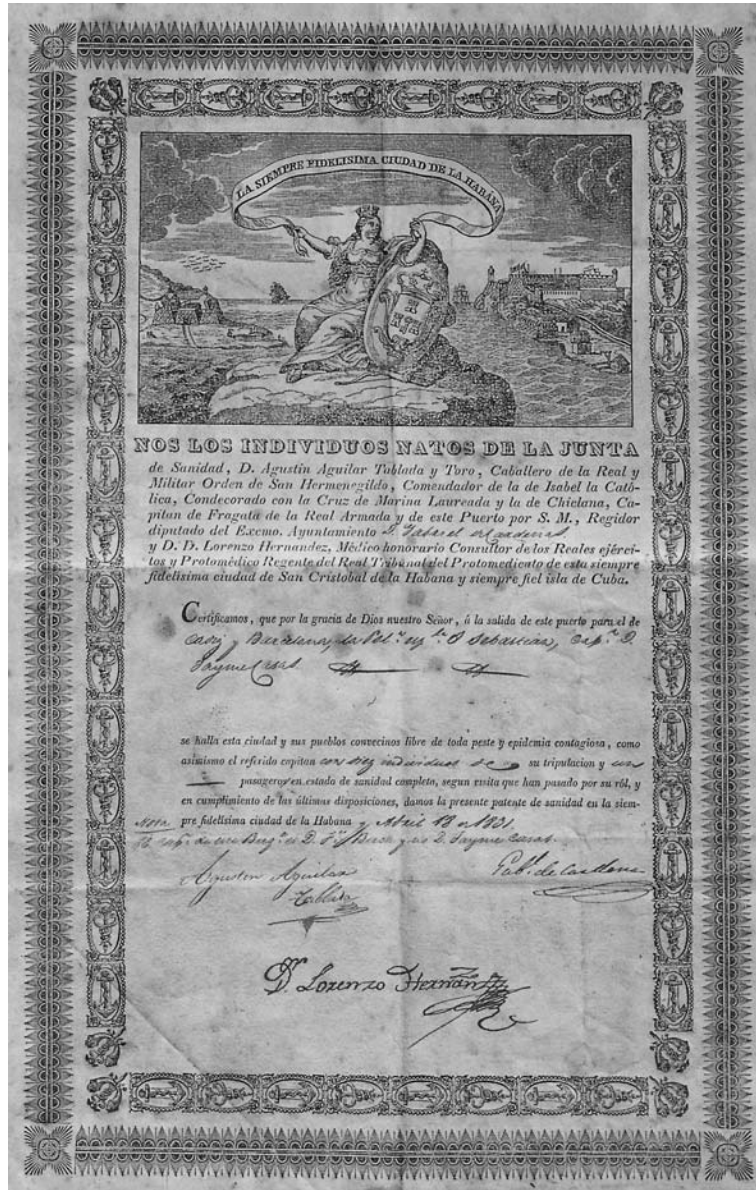 LA SIEMPRE FIDELISIMA CIUDAD DE LA HABANA
NOS LOS INDIVIDUOS NATOS DE LA JUNTA
de Sanidad, D. Agustin Aguilar Tablada y Toro, Caballero de la Real y
Militar Orden de San Hermenegildo, Comendador de la de Isabel la Cató-
lica, Condecorado con la Cruz de Marina Laureada y la de Chiclana, Ca-
pitan de Fragata de la Real Armada y de este Puerto por S. M., Regidor
diputado del Excmo. Ayuntamiento D.
y D. D. Lorenzo Hernandez, Médico honorario Consultor de los Reales ejérci-
tos y Protomédico Regente del Real Tribunal del Protomedicato de esta siempre
fidelísima ciudad de San Cristobal de la Habana y siempre fiel isla de Cuba.
Certificamos, que por la gracia de Dios nuestro Señor, á la salida de este puerto para el de
Cadiz y Barcelona, la S Sebastian, Cap.n D.
Jayme Casas
se halla esta ciudad y sus pueblos convecinos libre de toda peste y epidemia contagiosa, como
asimismo el referido capitan con diez individuos de su tripulacion y un
pasageros en estado de sanidad completa, segun visita que han pasado por su ról, y
en cumplimiento de las últimas disposiciones, damos la presente patente de sanidad en la siem-
Nota pre fidelísima ciudad de la Habana y Abril 13 de 1831
El cap.n de este Berg.n es D. y no D. Jayme Casas.
Agustin Aguilar Pab.l de Cardenas
Tablada
Dr. Lorenzo Hernandz